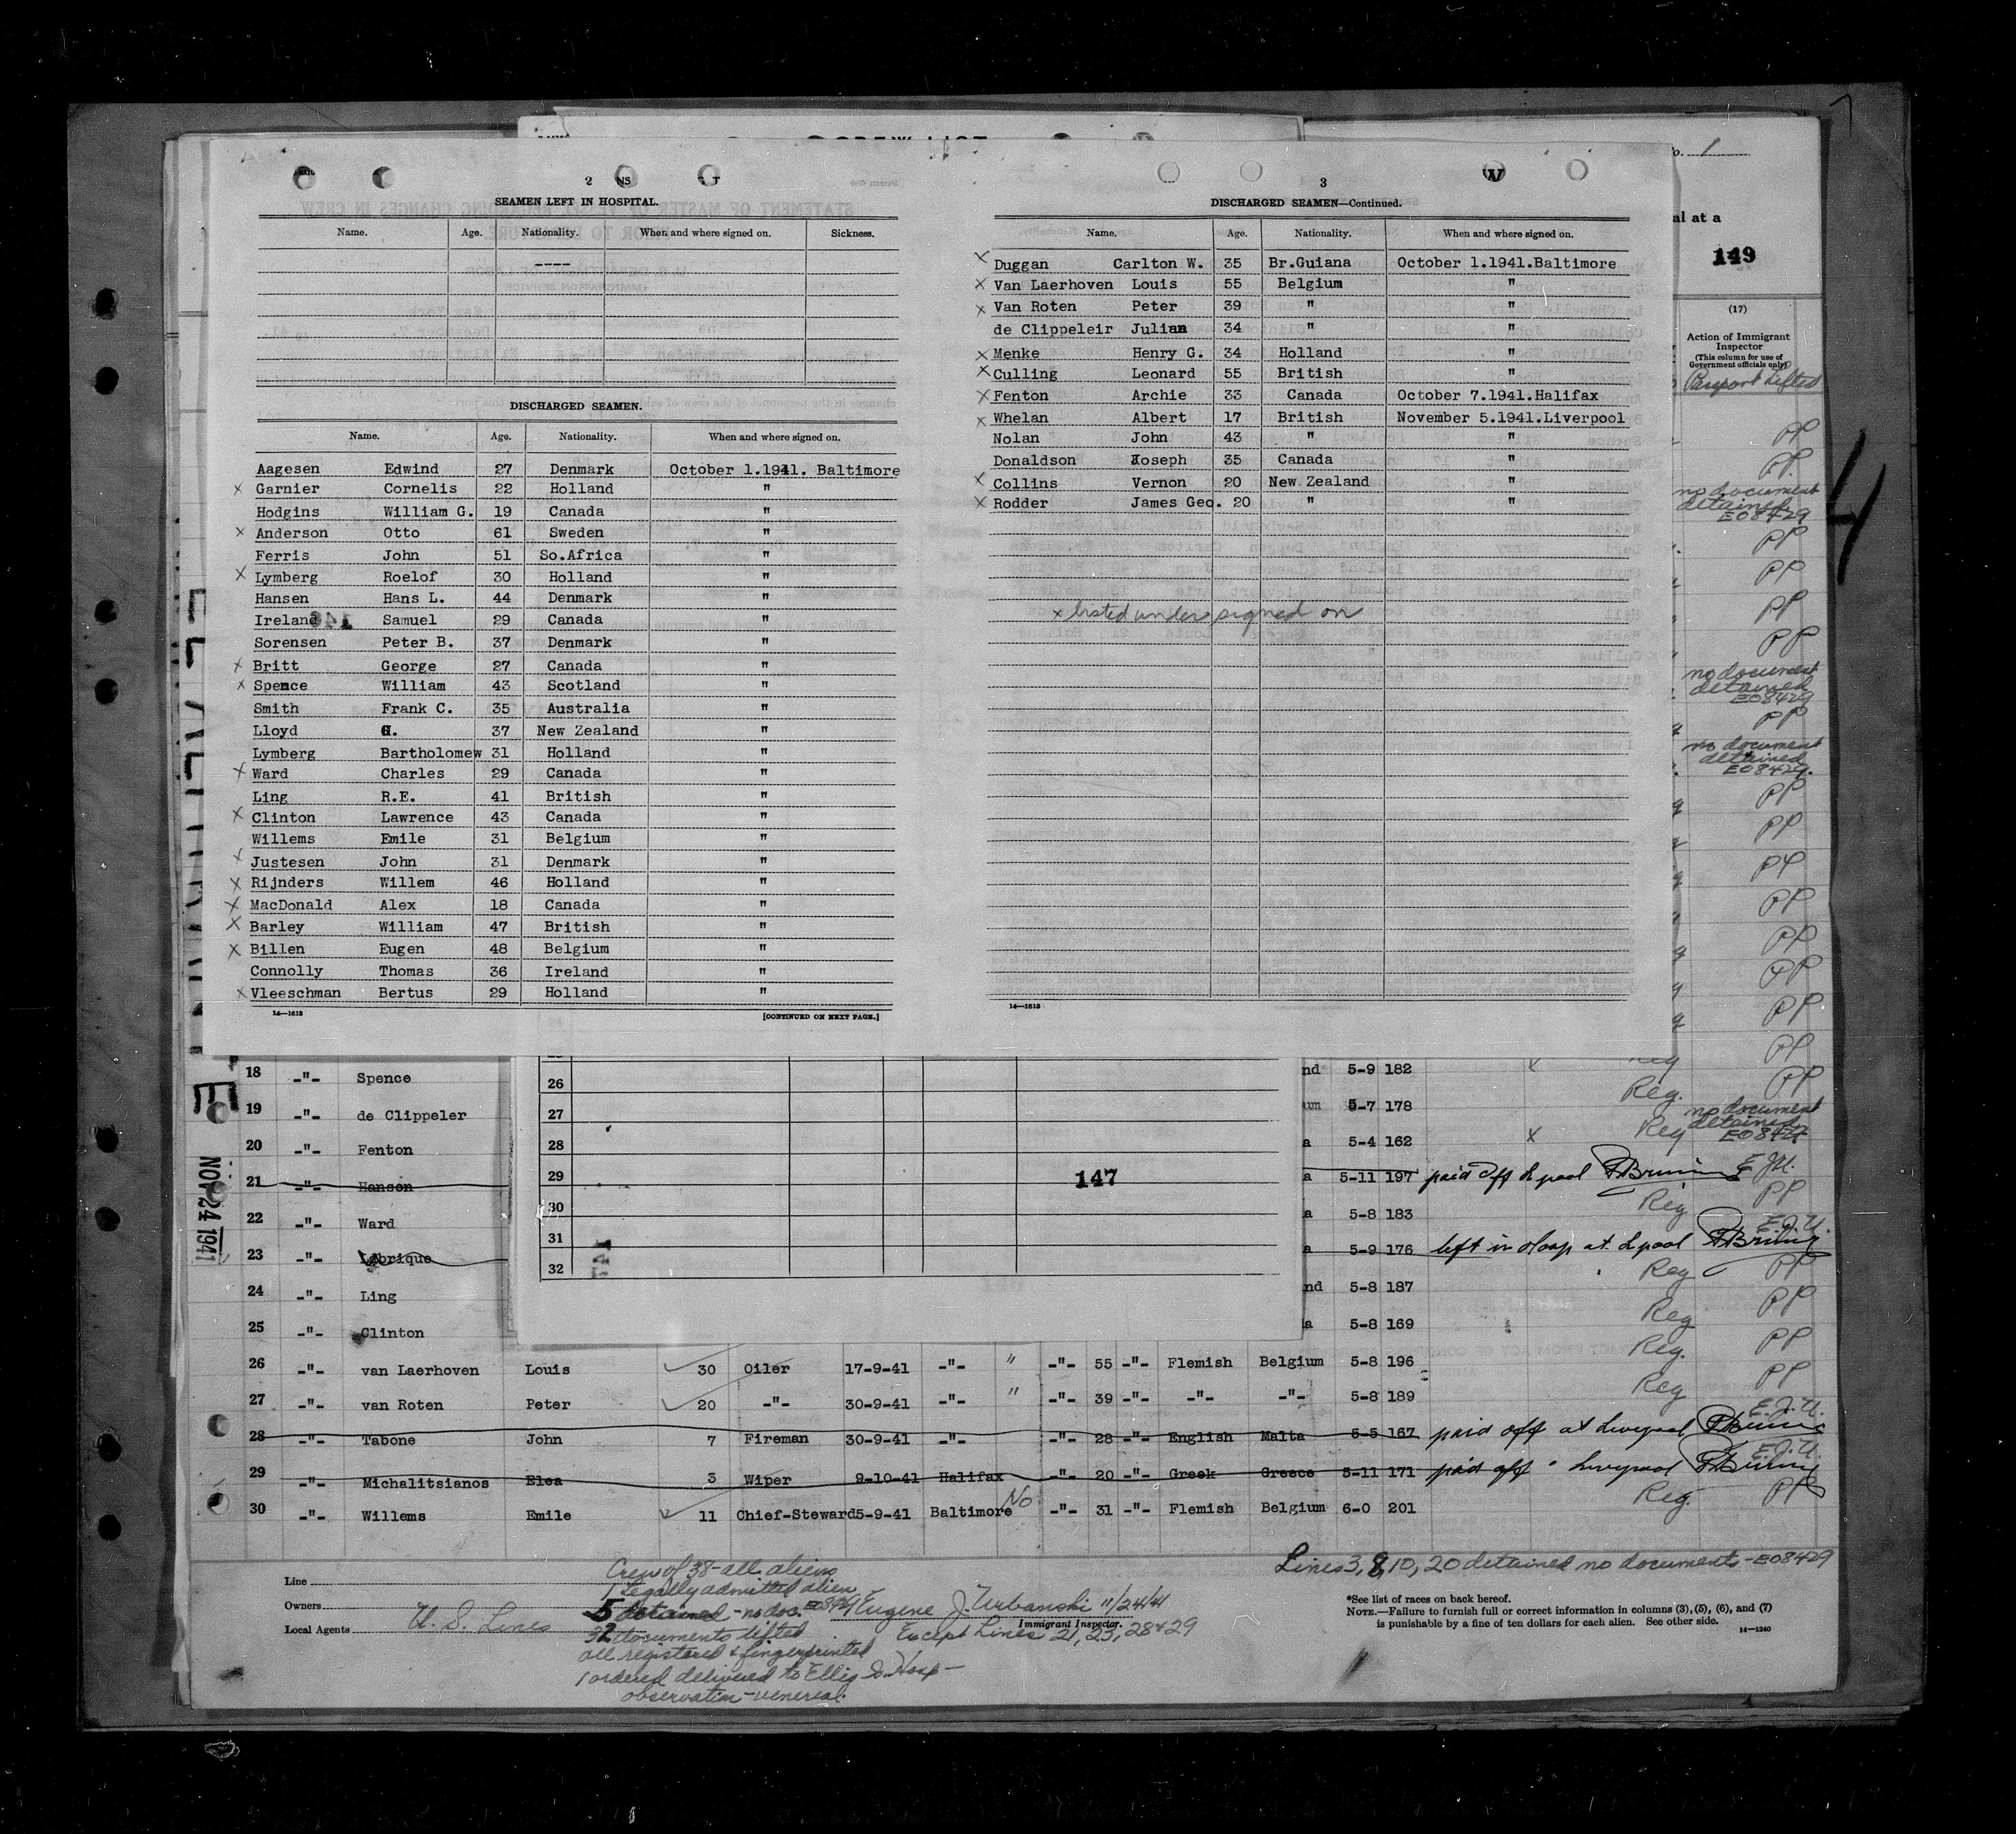 2
SEAMEN LEFT IN HOSPITAL.
Name. Age. Nationality. When and where signed on. Sickness.
----
DISCHARGED SEAMEN.
Name. Age. Nationality. When and where signed on.
Aagesen Edwind 27 Denmark October 1.1941. Baltimore
x Garnier Cornelis 22 Holland "
Hodgins William G. 19 Canada "
x Anderson Otto 61 Sweden "
Ferris John 51 So.Africa "
x Lymberg Roelof 30 Holland "
Hansen Hans L. 44 Denmark "
Ireland Samuel 29 Canada "
Sorensen Peter B. 37 Denmark "
x Britt George 27 Canada "
x Spence William 43 Scotland "
Smith Frank C. 35 Australia "
Lloyd G. 37 New Zealand "
Lymberg Bartholomew 31 Holland "
x Ward Charles 29 Canada "
Ling R.E. 41 British "
x Clinton Lawrence 43 Canada "
Willems Emile 31 Belgium "
x Justesen John 31 Denmark "
x Rijnders Willem 46 Holland "
x MacDonald Alex 18 Canada "
x Barley William 47 British "
x Billen Eugen 48 Belgium "
Connolly Thomas 36 Ireland "
x Vleeschman Bertus 29 Holland "
14—1613 [CONTINUED ON NEXT PAGE.]
3
DISCHARGED SEAMEN—Continued.
Name. Age. Nationality. When and where signed on.
x Duggan Carlton W. 35 Br.Guiana October 1.1941.Baltimore
x Van Laerhoven Louis 55 Belgium "
x Van Roten Peter 39 " "
de Clippeleir Julian 34 " "
x Menke Henry G. 34 Holland "
x Culling Leonard 55 British "
x Fenton Archie 33 Canada October 7.1941.Halifax
x Whelan Albert 17 British November 5.1941.Liverpool
Nolan John 43 " "
Donaldson Joseph 35 Canada "
x Collins Vernon 20 New Zealand "
x Rodder James Geo. 20 " "
x listed under signed on
14—1613
o. 1
al at a
149
(17)
Action of Immigrant
Inspector
(This column for use of
Government officials only)
Passport lifted
PP
PP.
no document
detained
E08429
PP
PP
PP
PP
no document
detained
E08429
PP
no document
detained
E08429.
PP
PP
PP
PP
PP
PP
PP
PP
18 -"- Spence nd 5-9 182 x Reg. PP
19 -"- de Clippeler um 5-7 178
no document
detained
E08429
20 -"- Fenton a 5-4 162 x Reg
21 -"- Hanson a 5-11 197 paid off Lpool E.J.U.
22 -"- Ward a 5-8 183 Reg PP
23 -"- Labrique a 5-9 176 left in hosp at Lpool E.J.U.
24 -"- Ling nd 5-8 187 Reg PP
25 -"- Clinton a 5-8 169 Reg PP
26 -"- van Laerhoven Louis 30 Oiler 17-9-41 -"- " -"- 55 -"- Flemish Belgium 5-8 196 Reg. PP
27 -"- van Roten Peter 20 -"- 30-9-41 -"- " -"- 39 -"- -"- -"- 5-8 189 Reg PP
28 -"- Tabone John 7 Fireman 30-9-41 -"- -"- 28 -"- English Malta 5-5 167 paid off at Liverpool E.J.U.
29 -"- Michalitsianos Elea 3 Wiper 9-10-41 Halifax -"- 20 -"- Greek Greece 5-11 171 paid off " Liverpool E.J.U.
30 -"- Willems Emile 11 Chief-Steward 5-9-41 Baltimore No -"- 31 -"- Flemish Belgium 6-0 201 Reg. PP
26
27
28
29
147
30
31
32
NOV 24 1941
Lines 3, 8, 10, 20 detained no documents - E08429
Line
Owners
Local Agents U. S. Lines
Crew of 38 - all aliens
1 Legally admitted alien
5 detained - no doc. E08429
32 documents lifted
all registered & fingerprinted
1 ordered delivered to Ellis Is. Hosp -
observation - venereal.
Eugene J. Urbanski 11/24/41
Immigrant Inspector.
Except Lines 21, 23, 28 + 29
*See list of races on back hereof.
NOTE.—Failure to furnish full or correct information in columns (3), (5), (6), and (7)
is punishable by a fine of ten dollars for each alien. See other side.
14—1240